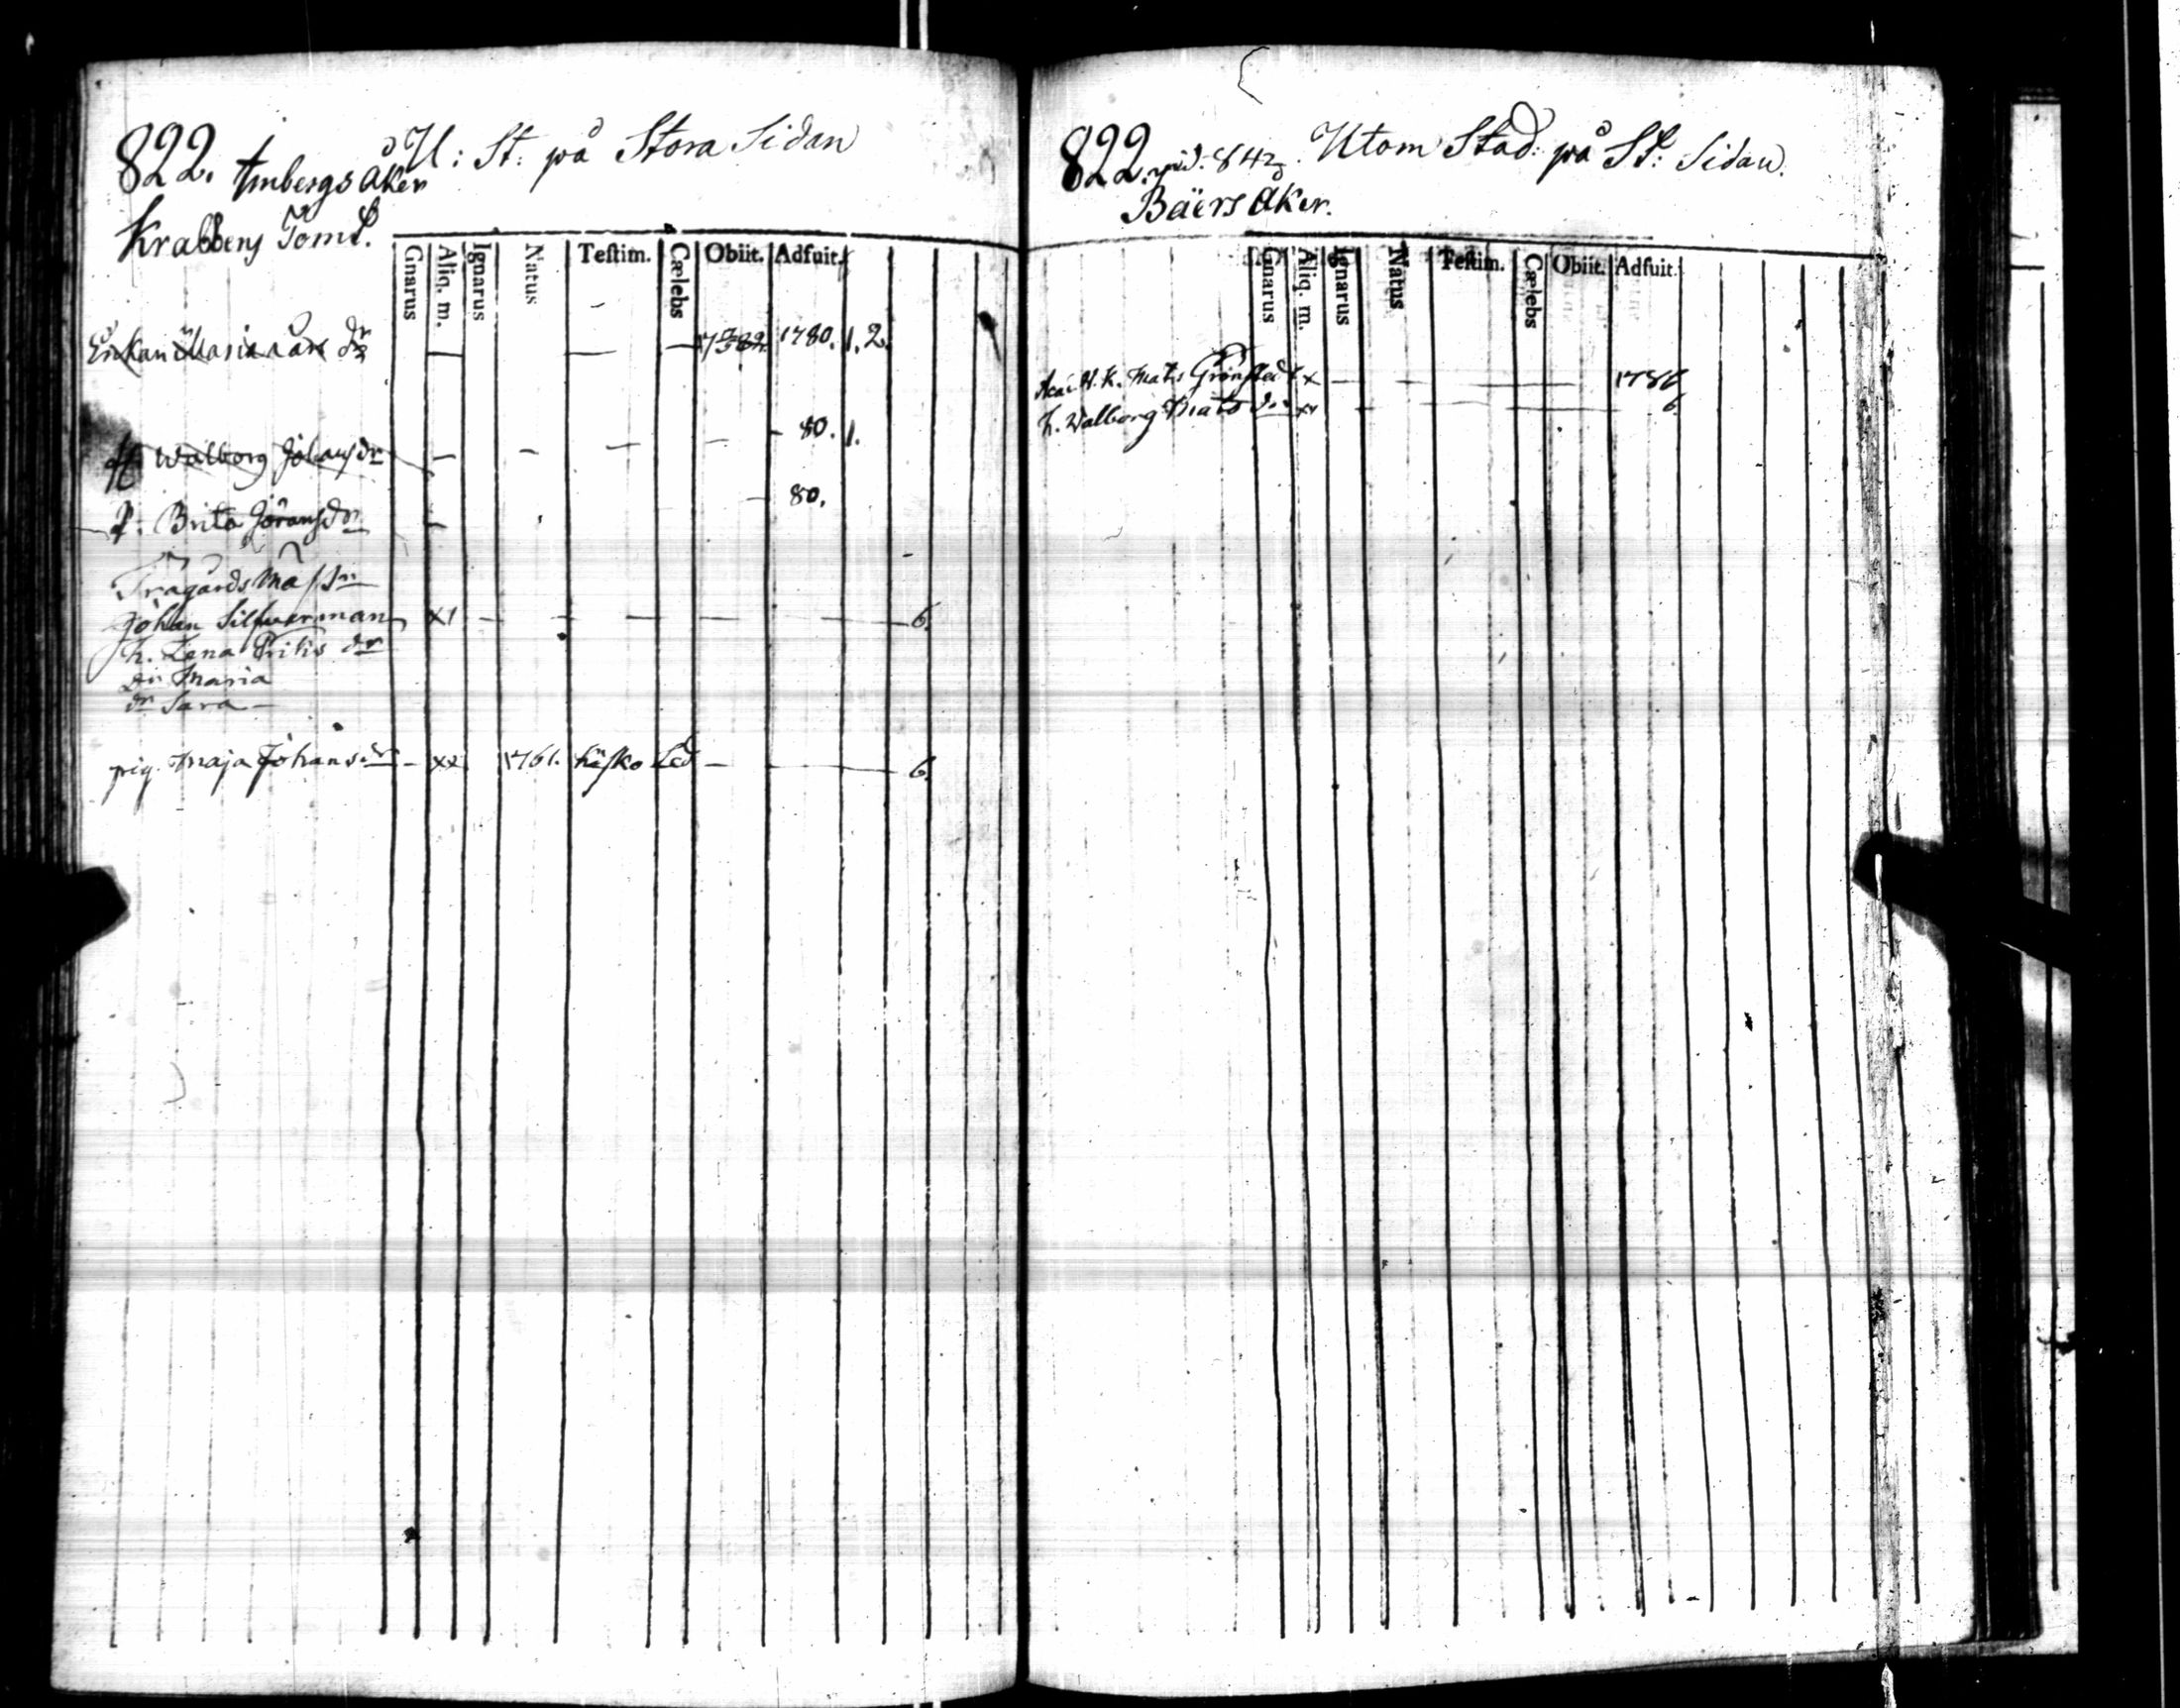 822. U: St: på Stora Sidan
Ambergs Åker
Krabbens Tomt.
Gnarus Aliq. m. Ignarus Natus Teſtim. Cælebs Obiit. Adfuit.
Enkan Maria dr — — — 1780. 1. 2.
H Walborg Johansdr — — — — - 80. 1.
P. Brita Göransdr — — 80.
Trägårds Mast.
Johan Silfwerman x1 — — — — — — — 6.
h. Lena Prilis dr
Dr Maria
dr Sara —
pig. Maja Johansdr — xx 1761. Led — — — 6.
822. vid. 842. Utom Stad: på St: Sidan.
Baers Åker.
Gnarus Aliq. m. Ignarus Natus Teſtim. Cælebs Obiit. Adfuit.
H. K. Mats Grönsted — — — 1786
h. Walborg Mats dr xx — — 6.